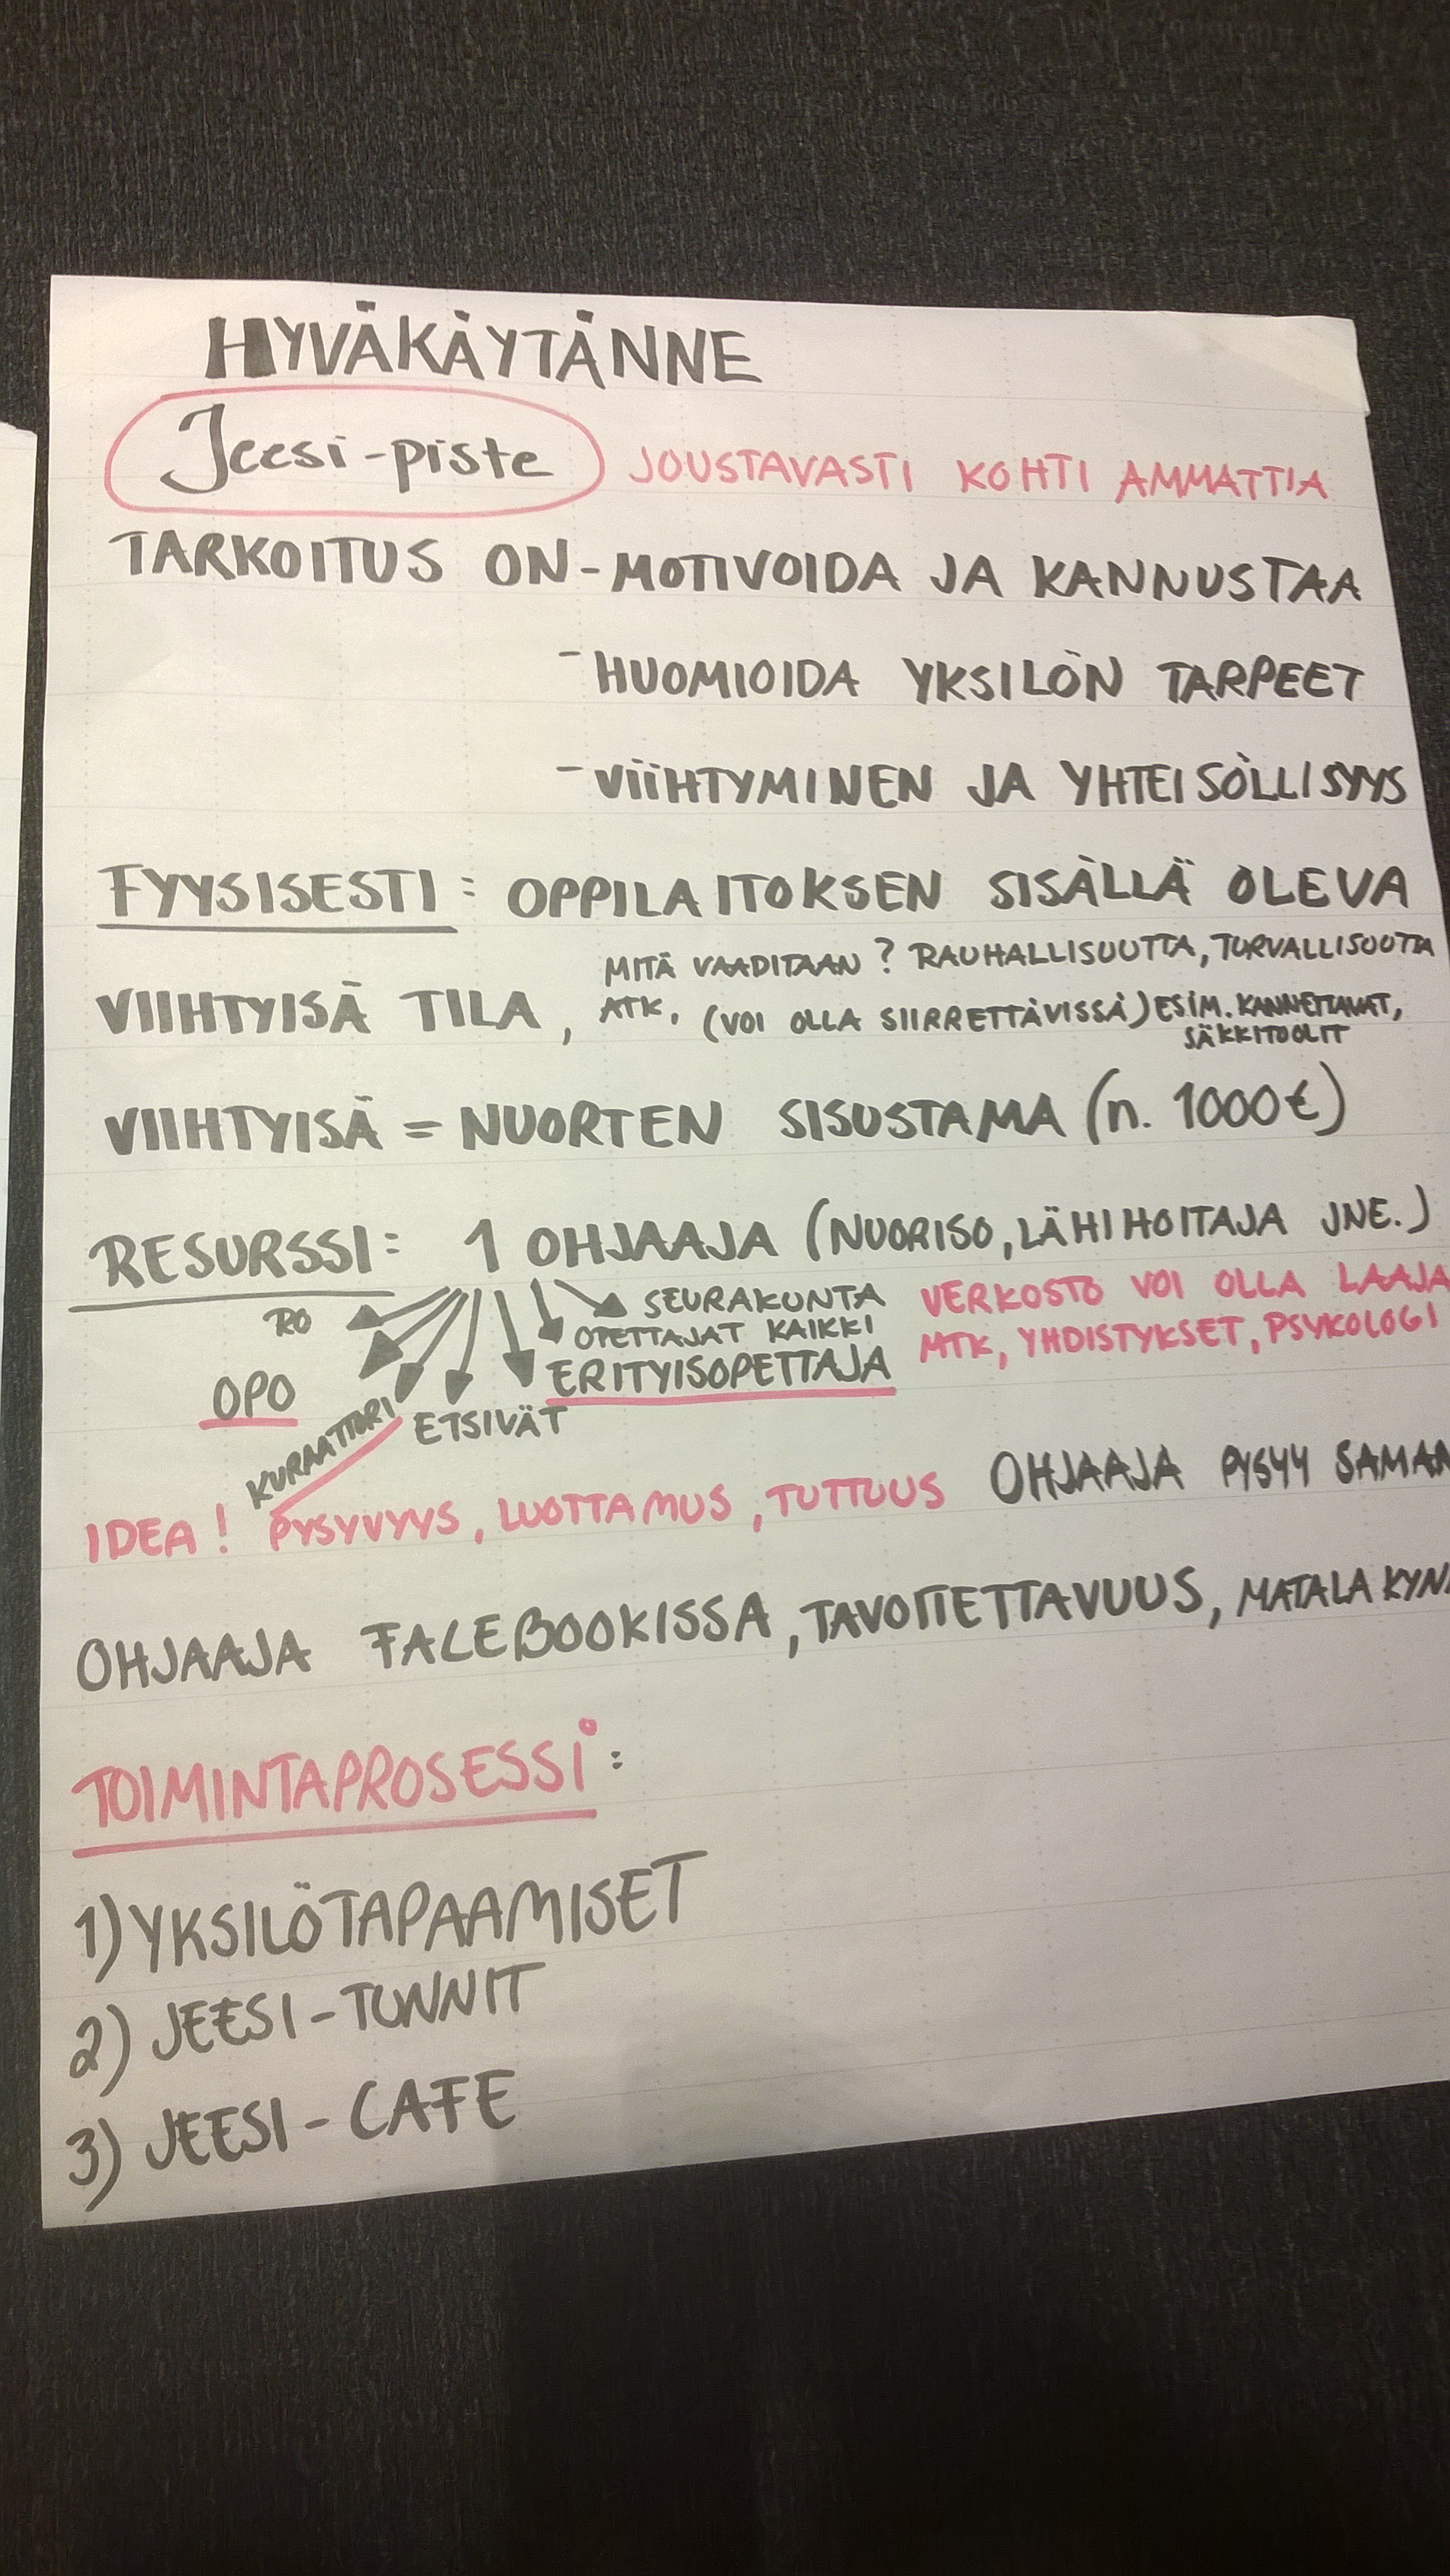 HYVÄKÄYTÄNNE
Jeesi-piste JOUSTAVASTI KOHTI AMMATTIA
TARKOITUS ON - MOTIVOIDA JA KANNUSTAA
- HUOMIOIDA YKSILÖN TARPEET
- VIIHTYMINEN JA YHTEISÖLLISYYS
FYYSISESTI: OPPILAITOKSEN SISÄLLÄ OLEVA
MITÄ VAADITAAN? RAUHALLISUUTTA, TURVALLISUUTTA
VIIHTYISÄ TILA, ATK. (VOI OLLA SIIRRETTÄVISSÄ) ESIM. KANNETTAVAT,
SÄKKITUOLIT
VIIHTYISÄ = NUORTEN SISUSTAMA (n. 1000€)
RESURSSI: 1 OHJAAJA (NUORISO, LÄHIHOITAJA JNE.)
RO SEURAKUNTA VERKOSTO VOI OLLA LAAJA
OPETTAJAT KAIKKI MTK, YHDISTYKSET, PSYKOLOGI
OPO ERITYISOPETTAJA
KURAATTORI ETSIVÄT
IDEA! PYSYVYYS, LUOTTAMUS, TUTTUUS OHJAAJA PYSYY SAMAN
OHJAAJA FACEBOOKISSA, TAVOITETTAVUUS, MATALA KYN
TOIMINTAPROSESSI:
1) YKSILÖTAPAAMISET
2) JEESI - TUNNIT
3) JEESI - CAFE